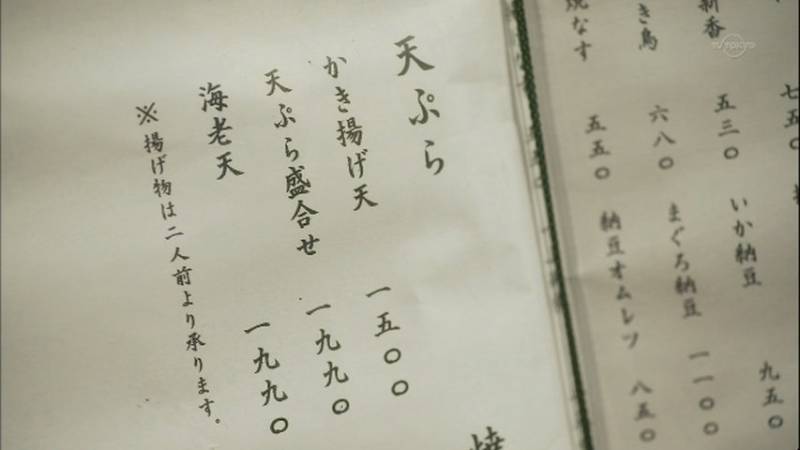 天ぷら
かき揚げ天 一五〇〇
天ぷら盛合せ 一九九〇
海老天 一九九〇
※揚げ物は二人前より承ります。
焼
七五〇
新香 五三〇
き鳥 六八〇
焼なす 五五〇
いか納豆 九五〇
まぐろ納豆 一一〇〇
納豆オムレツ 八五〇
TV TOKYO